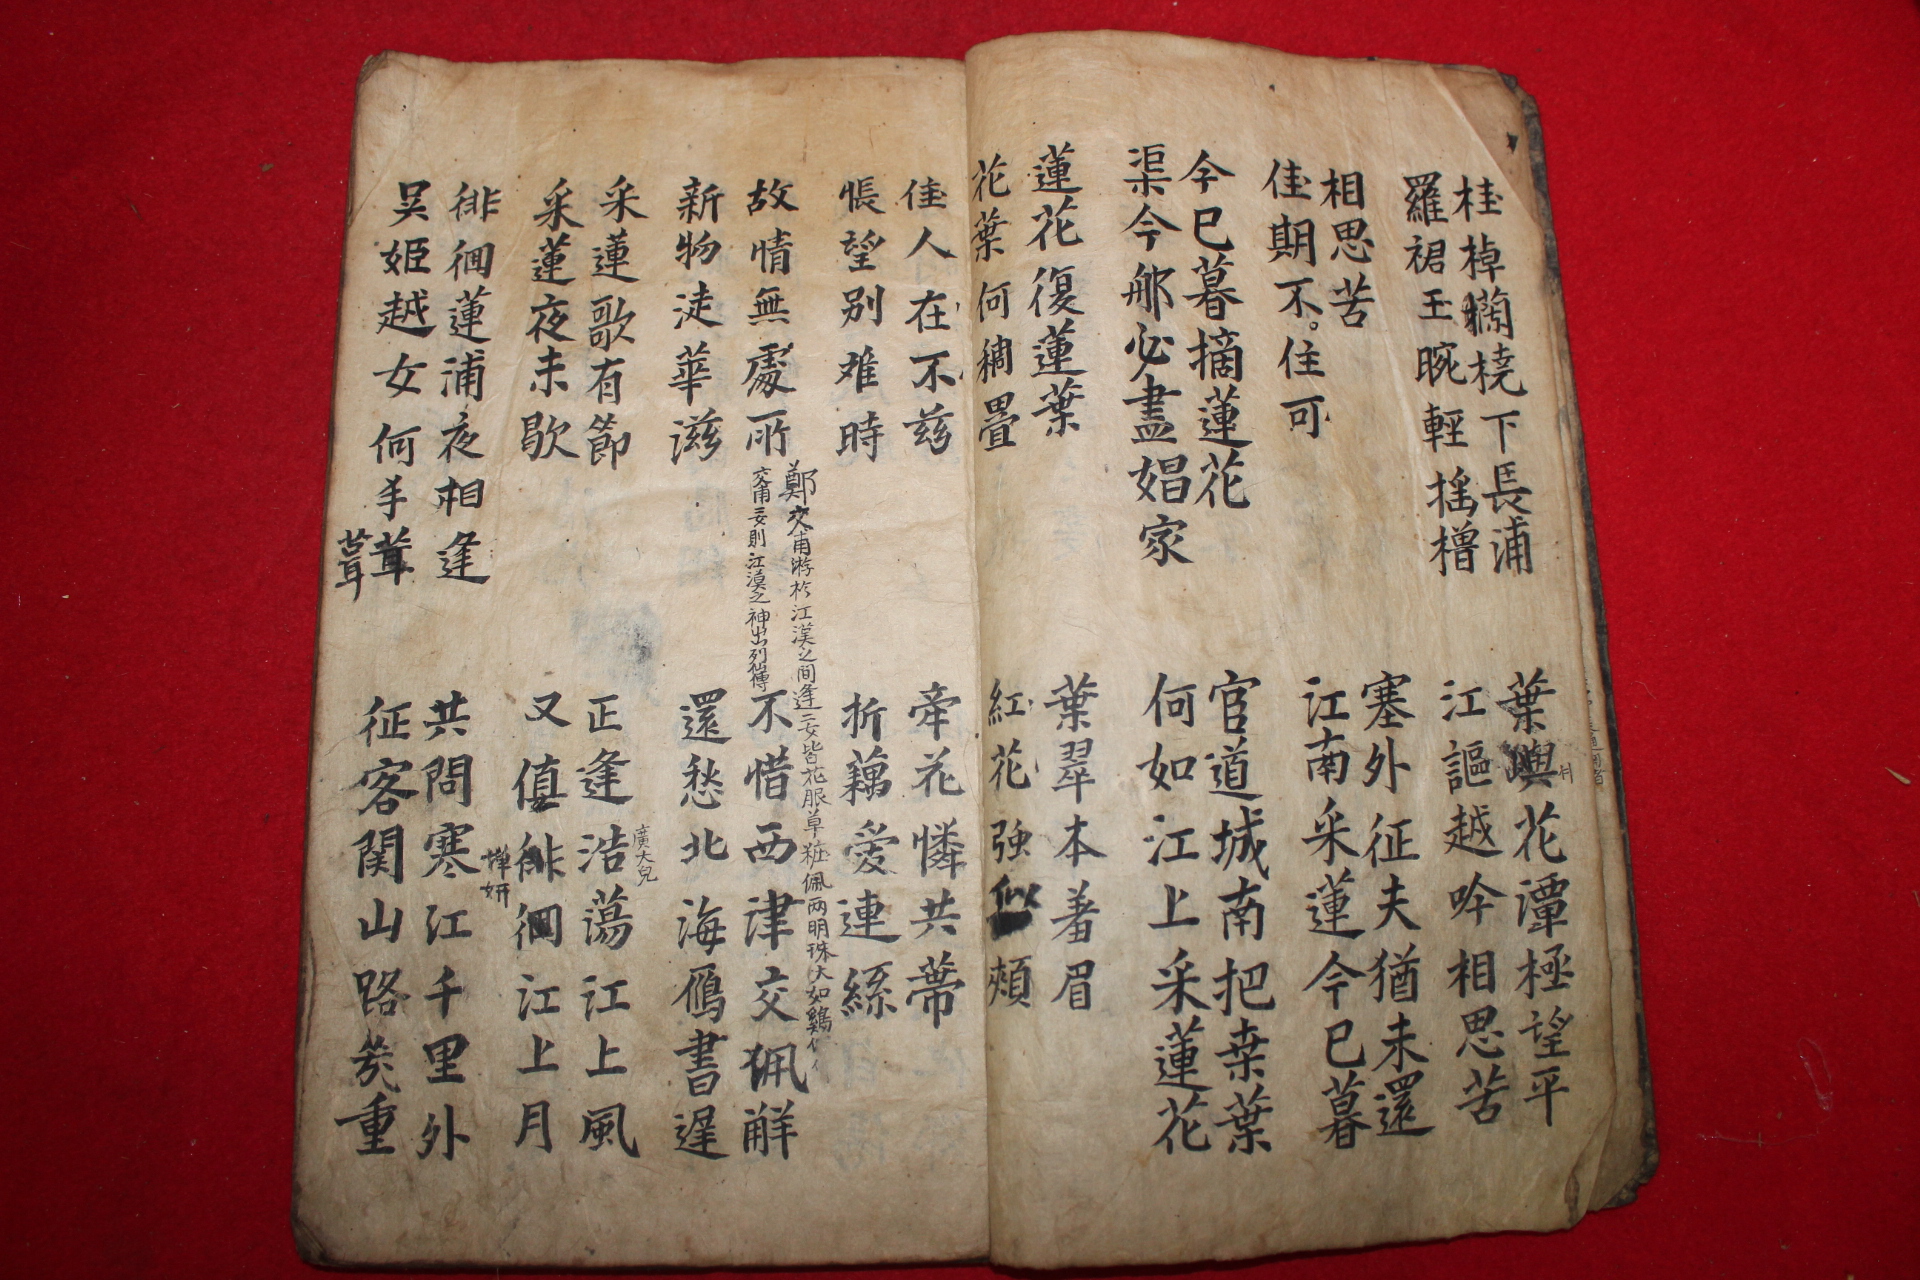 桂棹蘭橈下長浦
羅裙玉腕輕搖櫓
葉嶼花潭極望平
江謳越吟相思苦
相思苦
佳期不住可
塞外征夫猶未還
江南采蓮今已暮
今已暮摘蓮花
渠今那必盡娼家
官道城南把桒葉
何如江上采蓮花
蓮花復蓮葉
花葉何稠疊
葉翠本羞眉
紅花強似頰
佳人在不玆
悵望別难時
牵花憐共蔕
折藕愛連絲
故情無處所
鄭交甫游於江漢之間逢二女皆花服草粧佩兩明珠大如鷄
交甫二女則江漢之神出列仙傳
新物徒華滋
不惜西津交珮解
還愁北海鴈書遲
采蓮歌有節
采蓮夜未歇
正逢浩蕩江上風
廣大皃
又値徘徊江上月
嬋妍
徘徊蓮浦夜相逢
吴姬越女何丰茸
茸
共問寒江千里外
征客関山路幾重